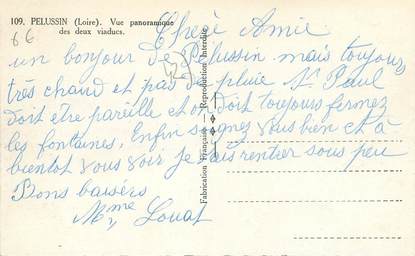 109. PELUSSIN (Loire). Vue panoramique
des deux viaducs.
66
Chère Amie
un bonjour de Pélussin mais toujours
très chaud et pas de pluie St Paul
doit être pareille et on doit toujours fermez
les fontaines. Enfin soignez vous bien et à
bientôt vous voir je vais rentrer sous peu
Bons baisers
Mme Louat
Fabrication Française - Reproduction Interdite